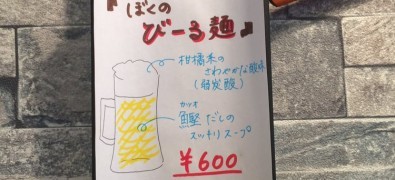 『ぼくの
びーる麺』
柑橘系の
さわやかな酸味
(弱炭酸)
カツオ
鰹だしの
スッキリスープ
¥600